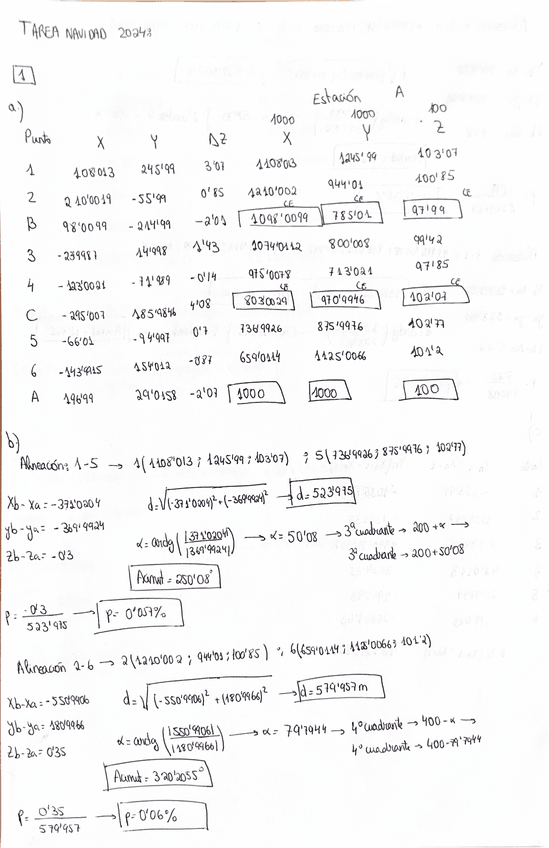 TAREA NAVIDAD 2024
1
a)
Estación A
1000 1000 100
Punto X Y ΔZ X Y Z
1 108'013 245'99 3'07 1108'03 1245'99 103'07
2 210'0019 -55'99 0'85 1210'002 944'01 100'85
CE CE CE
B 98'0099 -214'99 -2'01 1098'0099 785'01 97'99
3 -23'9987 14'998 1'43 1074'0112 800'008 99'42
4 -123'0021 -71'989 -0'14 975'0078 713'021 97'85
CE CE CE
C -295'007 185'9846 4'08 803'0029 970'9946 102'07
5 -66'01 -94'997 0'7 736'9926 875'9976 102'77
6 -143'9915 154'012 -0'87 659'0114 1125'0066 101'2
A 196'99 29'0158 -2'07 1000 1000 100
b)
Alineación: 1-5 → 1(1108'013; 1245'99; 103'07) ; 5(736'9926; 875'9976; 102'77)
Xb-Xa=-371'0204 d=√(-371'0204)²+(-369'9924)² → d=523'975
Yb-Ya= -369'9924
Zb-Za= -0'3 α=arctg(|371'0204|/|369'9924|) → α=50'08 → 3º cuadrante → 200+α →
3º cuadrante → 200+50'08
Azimut=250'08°
P= -0'3/523'975 → P= 0'057%
Alineación 2-6 → 2(1210'002; 944'01; 100'85) ; 6(659'0114; 1125'0066; 101'2)
Xb-Xa=-550'9906 d=√(-550'9906)²+(180'9966)² → d=579'957m
Yb-Ya=180'9966
Zb-Za=0'35 α=arctg(|550'9906|/|180'9966|) → α=79'7944 → 4º cuadrante → 400-α →
4º cuadrante → 400-79'7944
Azimut=320'2055°
P= 0'35/579'957 → P=0'06%